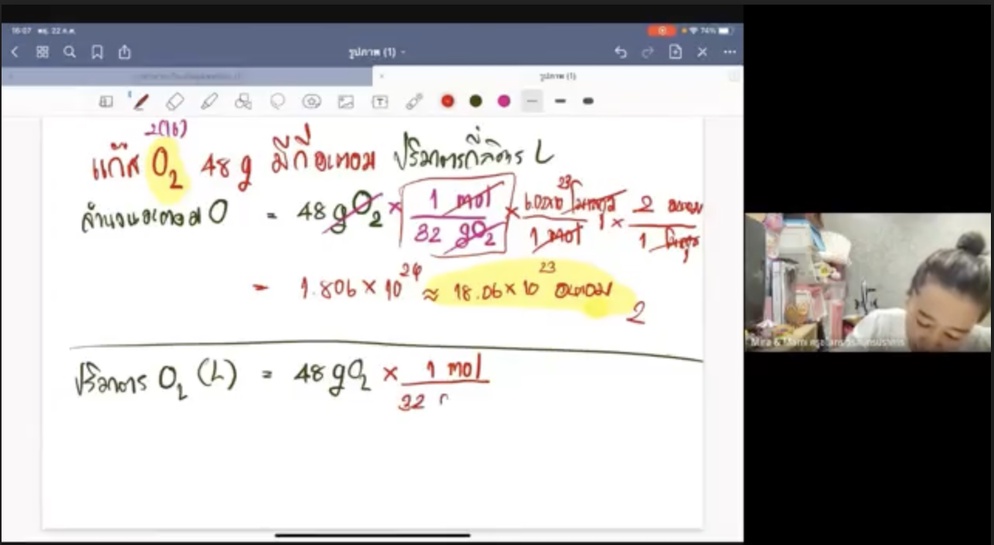 16:07 พฤ. 22 ก.ค.
74%
รูปภาพ (1)
รูปภาพ (1)
2(16)
แก๊ส O₂ 48 g มีกี่อะตอม ปริมาตรกี่ลิตร L
จำนวนอะตอม O = 48 gO₂ × 1 mol / 32 gO₂ × 6.02×10²³ โมเลกุล / 1 mol × 2 อะตอม / 1 โมเลกุล
= 1.806 × 10²⁴ ≈ 18.06 × 10²³ อะตอม
2
ปริมาตร O₂ (L) = 48 gO₂ × 1 mol / 32
Mira & Marni